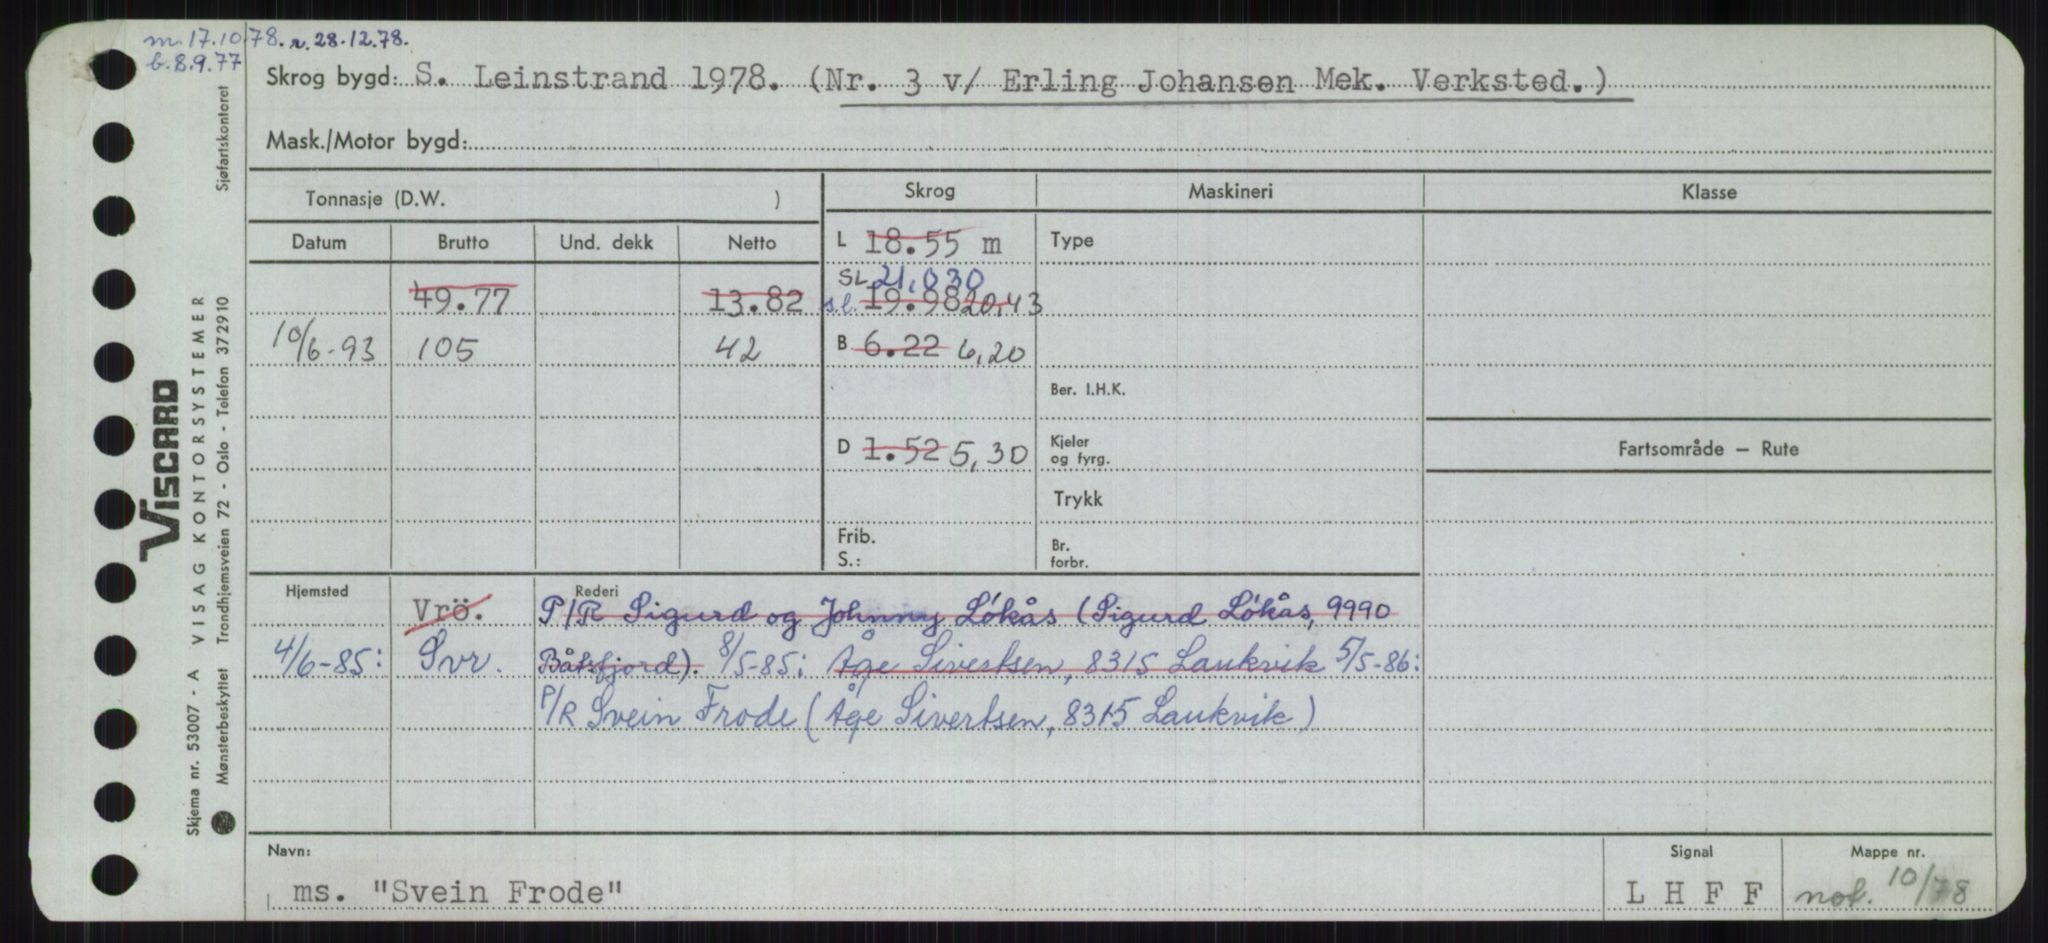 m. 17.10.78. r. 28.12.78.
b. 8.9.77
Skrog bygd: S. Leinstrand 1978. (Nr. 3 v/ Erling Johansen Mek. Verksted.)
Mask./Motor bygd:
Tonnasje (D.W. )
Skrog
Maskineri
Klasse
Datum
Brutto
Und. dekk
Netto
L 18.55 m
Type
SL 21,030
49.77
13.82
s.l. 19.98 20,43
10/6-93
105
42
B 6.22 6,20
Ber. I.H.K.
D 1.52 5,30
Kjeler
og fyrg.
Fartsområde — Rute
Trykk
Frib.
S.:
Br.
forbr.
Hjemsted
Rederi
Vrö.
P/R Sigurd og Johnny Lökås (Sigurd Lökås, 9990
4/6-85:
Svr.
Båtsfjord). 8/5-85: Åge Sivertsen, 8315 Laukvik 5/5-86:
P/R Svein Frode (Åge Sivertsen, 8315 Laukvik)
Navn:
ms. "Svein Frode"
Signal
L H F F
Mappe nr.
not. 10/78
VISCARD
Skjema nr. 53007 - A VISAG KONTORSYSTEMER
Mønsterbeskyttet Trondhjemsveien 72 - Oslo - Telefon 372910
Sjøfartskontoret